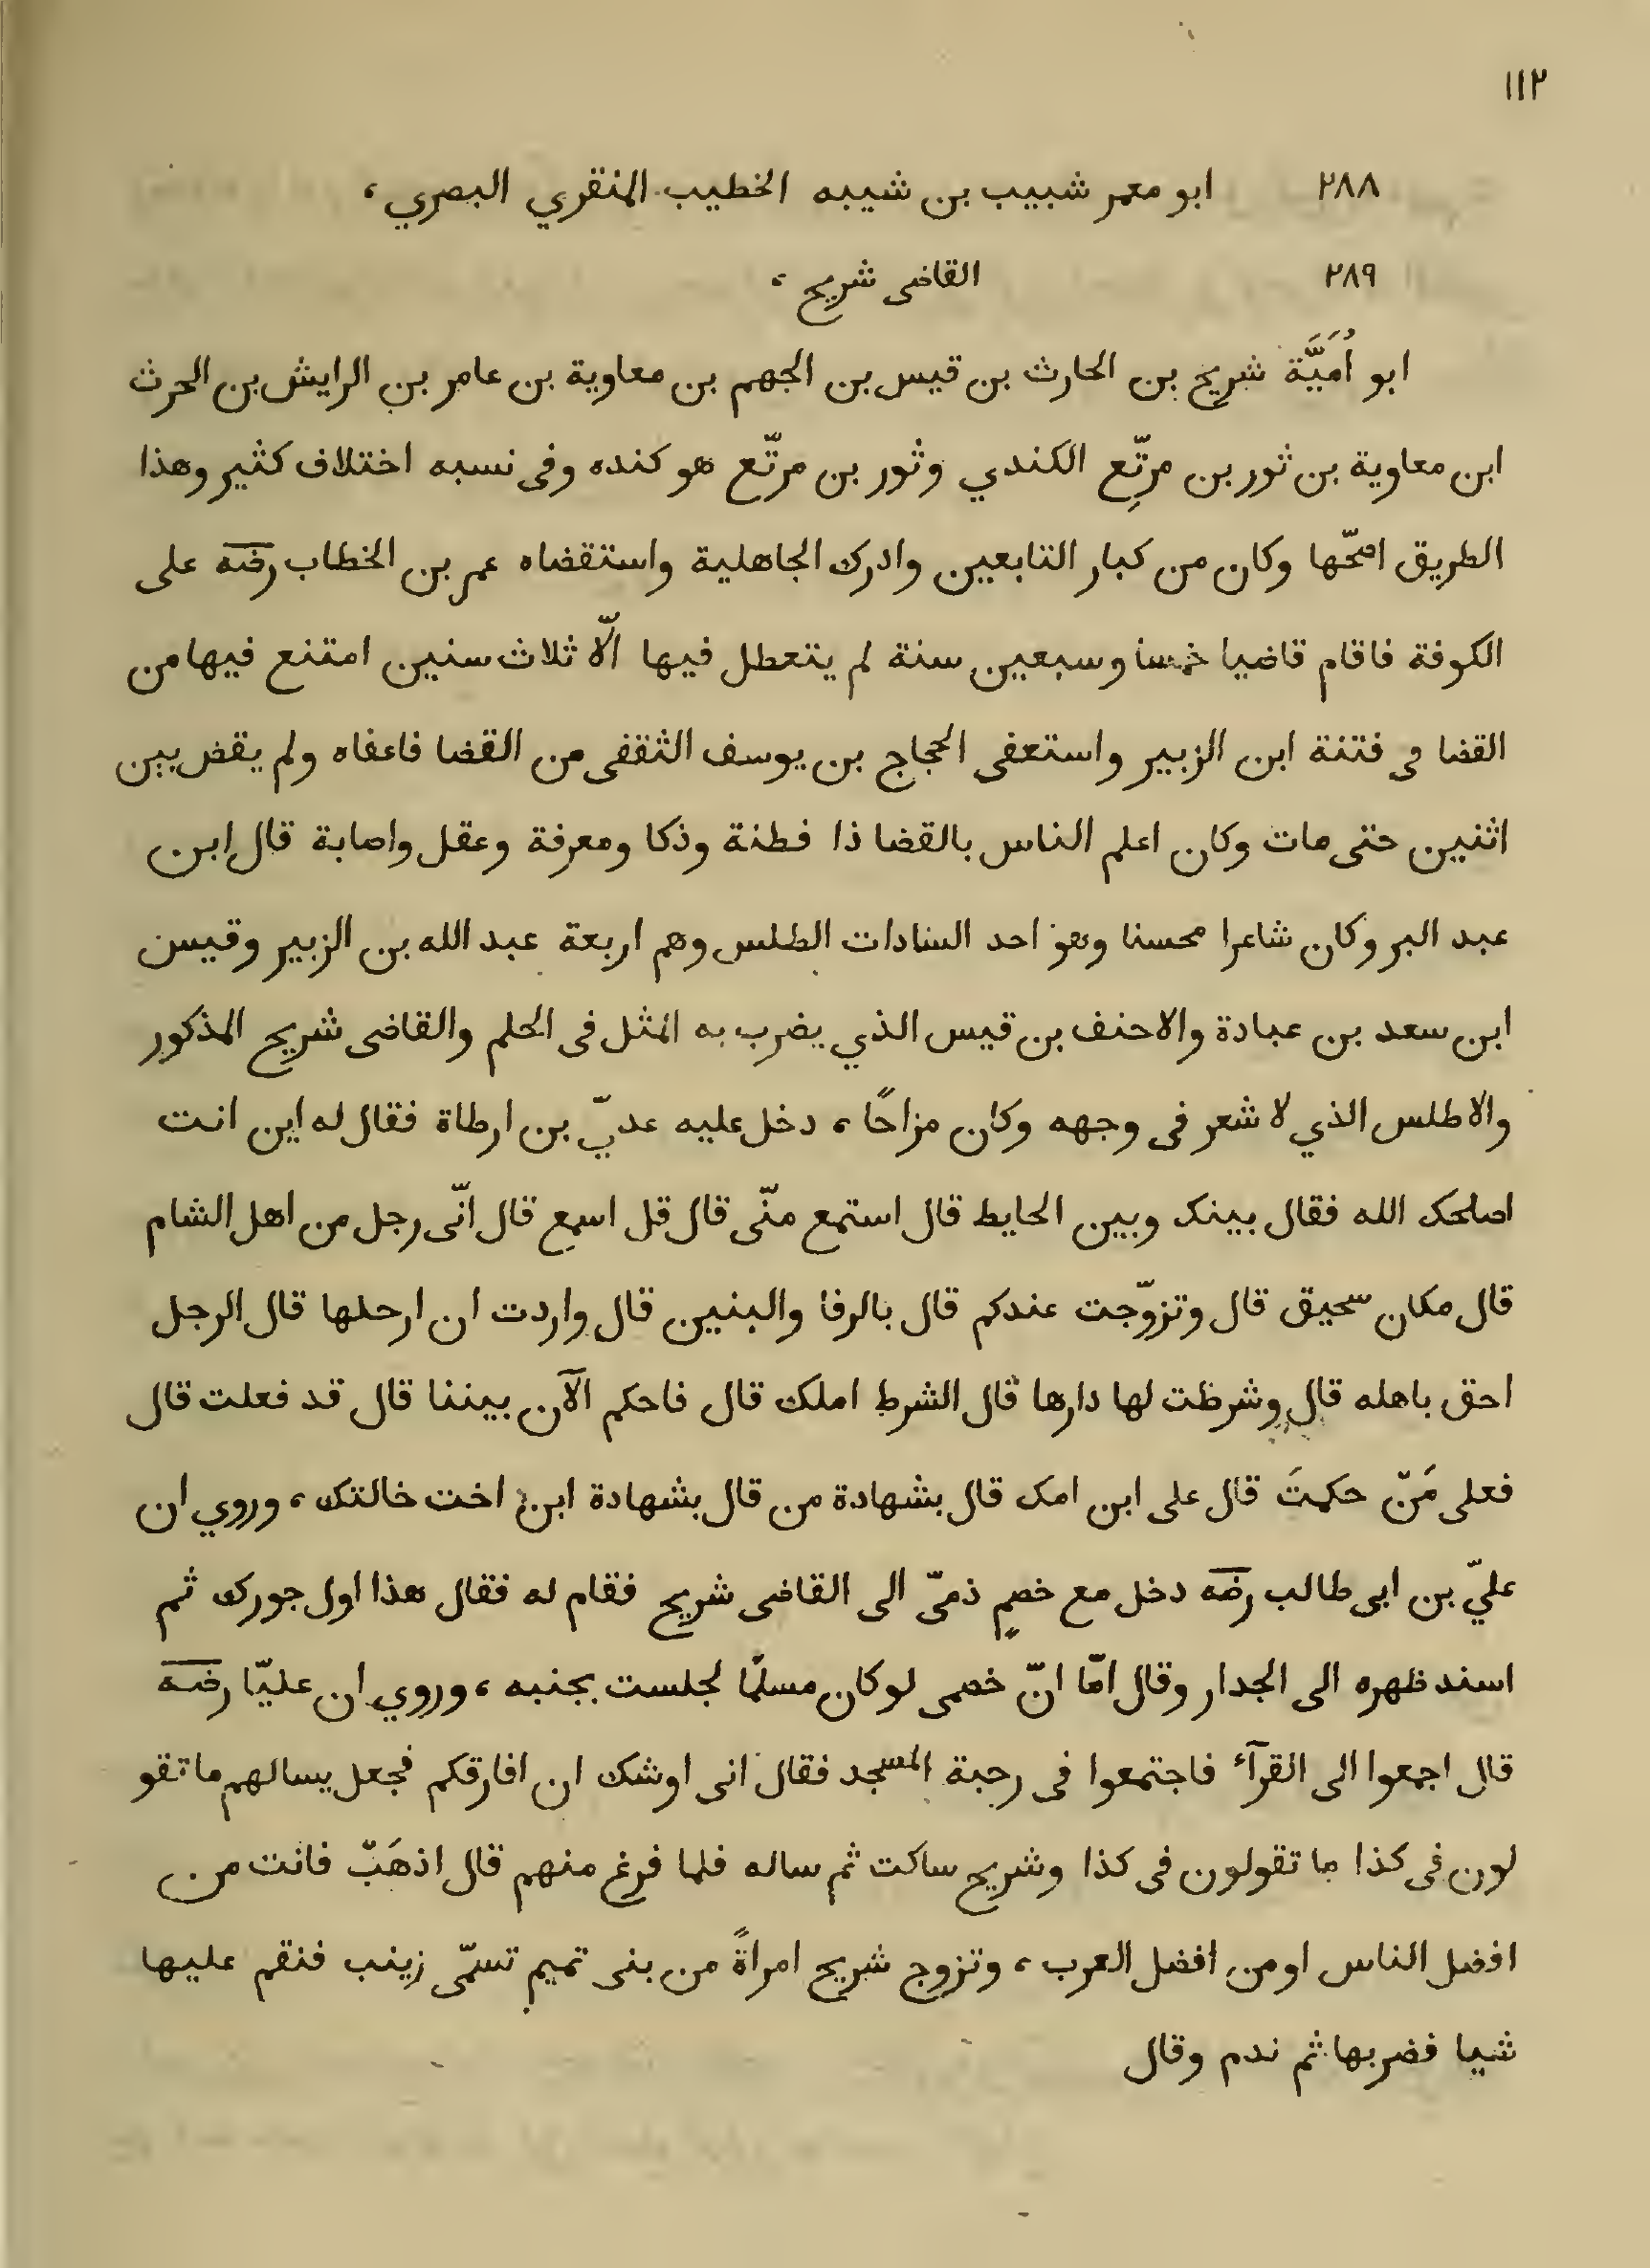 ١١٢
٢٨٨ ابو معمر شبيب بن شيبه الخطيب المنقري البصري ،
٢٨٩ القاضى شريح ،
ابو اُمَيَّة شريح بن الحارث بن قيس بن الجهم بن معاوية بن عامر بن الرايش بن الحرث
ابن معاوية بن ثور بن مرتِّع الكندي وثور بن مرتّع هو كنده وفى نسبه اختلاف كثير وهذا
الطريق اصحّها وكان من كبار التابعين وادرك الجاهلية واستقضاه عمر بن الخطاب رضه على
الكوفة فاقام قاضيا خمسا وسبعين سنة لم يتعطل فيها الّا ثلاث سنين امتنع فيها من
القضا فى فتنة ابن الزبير واستعفى الحجاج بن يوسف الثقفى من القضا فاعفاه ولم يقض بين
اثنين حتى مات وكان اعلم الناس بالقضا ذا فطنة وذكا ومعرفة وعقل واصابة قال ابن
عبد البر وكان شاعرا محسنا وهو احد السادات الطلس وهم اربعة عبد الله بن الزبير وقيس
ابن سعد بن عبادة والاحنف بن قيس الذي يضرب به المثل فى الحلم والقاضى شريح المذكور
والاطلس الذي لا شعر فى وجهه وكان مزاحًا ، دخل عليه عديّ بن ارطاة فقال له اين انت
اصلحك الله فقال بينك وبين الحايط قال استمع منّى قال قل اسمع قال انّى رجل من اهل الشام
قال مكان سحيق قال وتزوّجت عندكم قال بالرفا والبنين قال واردت ان ارحلها قال الرجل
احق باهله قال وشرطت لها دارها قال الشرط املك قال فاحكم الآن بيننا قال قد فعلت قال
فعلى مَنْ حكمتَ قال على ابن امك قال بشهادة من قال بشهادة ابن اخت خالتك ، وروي ان
عليّ بن ابى طالب رضه دخل مع خصمٍ ذمىّ الى القاضى شريح فقام له فقال هذا اول جورك ثم
اسند ظهره الى الجدار وقال امّا انّ خصمى لو كان مسلمًا لجلست بجنبه ، وروي ان عليّا رضه
قال اجمعوا الى القرآء فاجتمعوا فى رحبة المسجد فقال انى اوشك ان افارقكم فجعل يسالهم ما تقو
لون فى كذا ما تقولون فى كذا وشريح ساكت ثم ساله فلما فرغ منهم قال اذهَبْ فانت من
افضل الناس او من افضل العرب ، وتزوج شريح امراةً من بنى تميم تسمّى زينب فنقم عليها
شيا فضربها ثم ندم وقال